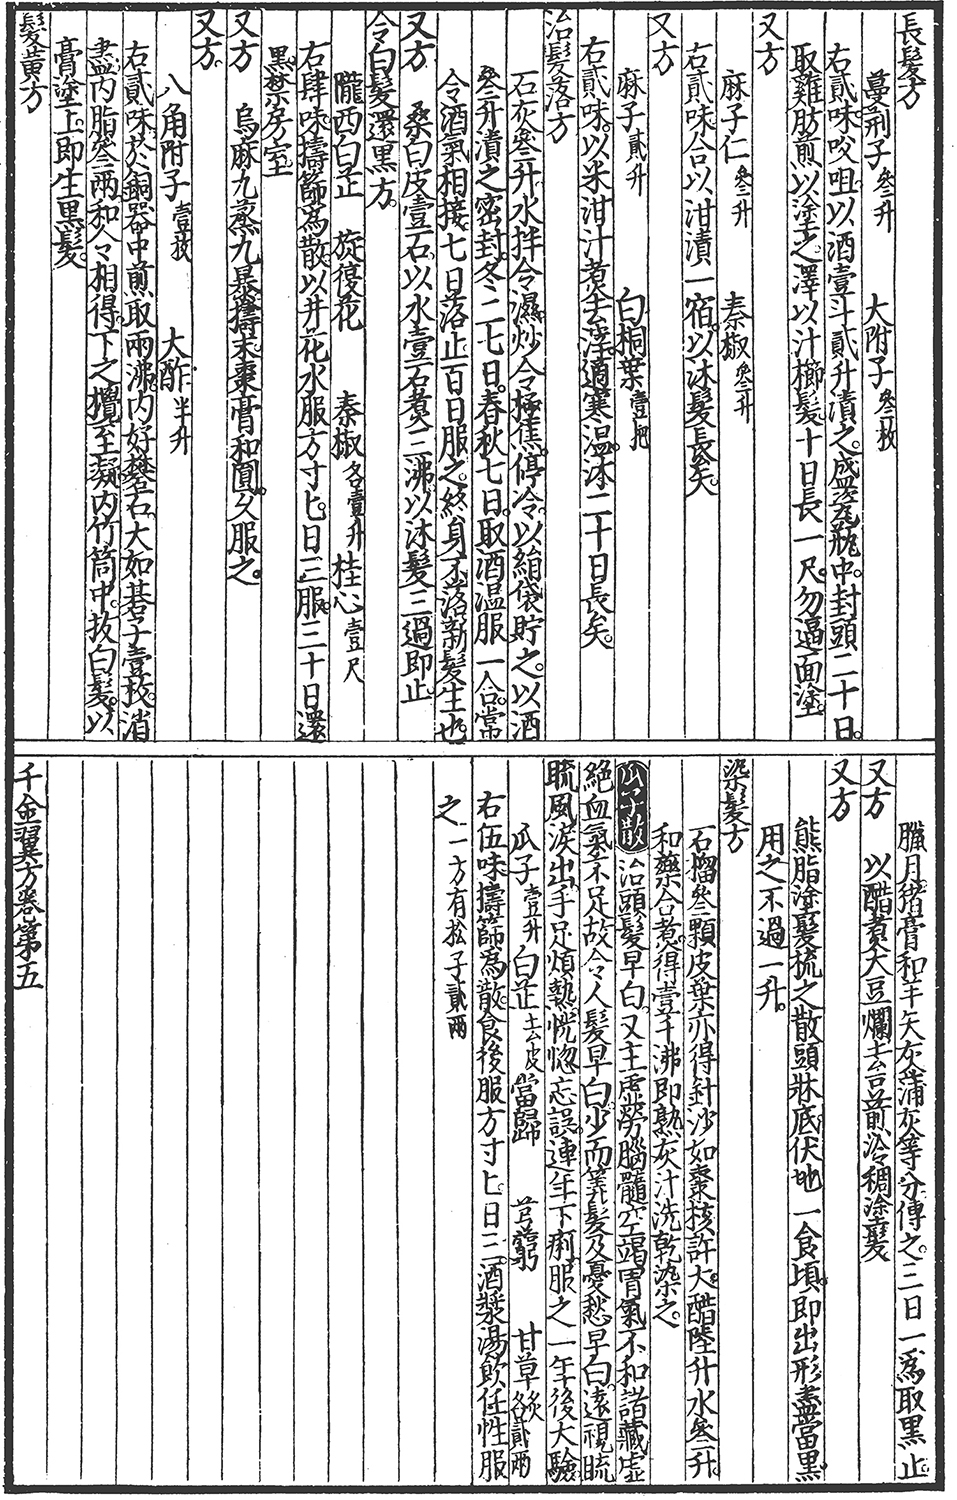 長髮方
蔓荆子叁升　大附子叁枚
右貳味㕮咀以酒壹斗貳升漬之盛瓷瓶中封頭二十日
取雞肪煎以塗之澤以汁櫛髮十日長一尺勿逼面塗
又方
麻子仁叁升　秦椒叁升
右貳味合以泔漬一宿以沐髮長矣
又方
麻子貳升　白桐葉壹把
右貳味以米泔汁煮去滓適寒温沐二十日長矣
治髮落方
石灰叁升水拌令濕炒令極焦停冷以絹袋貯之以酒
叁升漬之密封冬二七日春秋七日取酒温服一合常
令酒氣相接七日落止百日服之終身不落新髮生也
又方　桑白皮壹石以水壹石煮三沸以沐髮三過即止
令白髮還黑方
隴西白芷　旋復花　秦椒各壹升　桂心壹尺
右肆味擣篩爲散以井花水服方寸匕日三服三十日還
黑禁房室
又方　烏麻九蒸九暴擣末棗膏和圓久服之
又方
八角附子壹枚　大酢半升
右貳味於銅器中煎取兩沸内好礬石大如碁子壹枚消
盡内脂叁兩和令相得下之攪至凝内竹筒中拔白髮以
膏塗上即生黑髮
髮黄方
臘月猪膏和羊矢灰蒲灰等分傅之三日一爲取黑止
又方　以醋煮大豆爛去豆煎冷稠塗髮
又方
熊脂塗髮梳之散頭牀底伏地一食頃即出形盡當黑
用之不過一升
染髮方
石榴叁顆皮葉亦得針沙如棗核許大醋陸升水叁升
和藥合煮得壹千沸即熟灰汁洗乾染之
瓜子散　治頭髮早白又主虛勞腦髓空竭胃氣不和諸藏虛
絕血氣不足故令人髮早白少而筭髮及憂愁早白遠視䀮
䀮風淚出手足煩熱恍惚忘誤連年下痢服之一年後大驗
瓜子壹升　白芷去皮　當歸　芎藭　甘草炙各貳兩
右伍味擣篩爲散食後服方寸匕日三酒漿湯飲任性服
之一方有松子貳兩
千金翼方卷第五